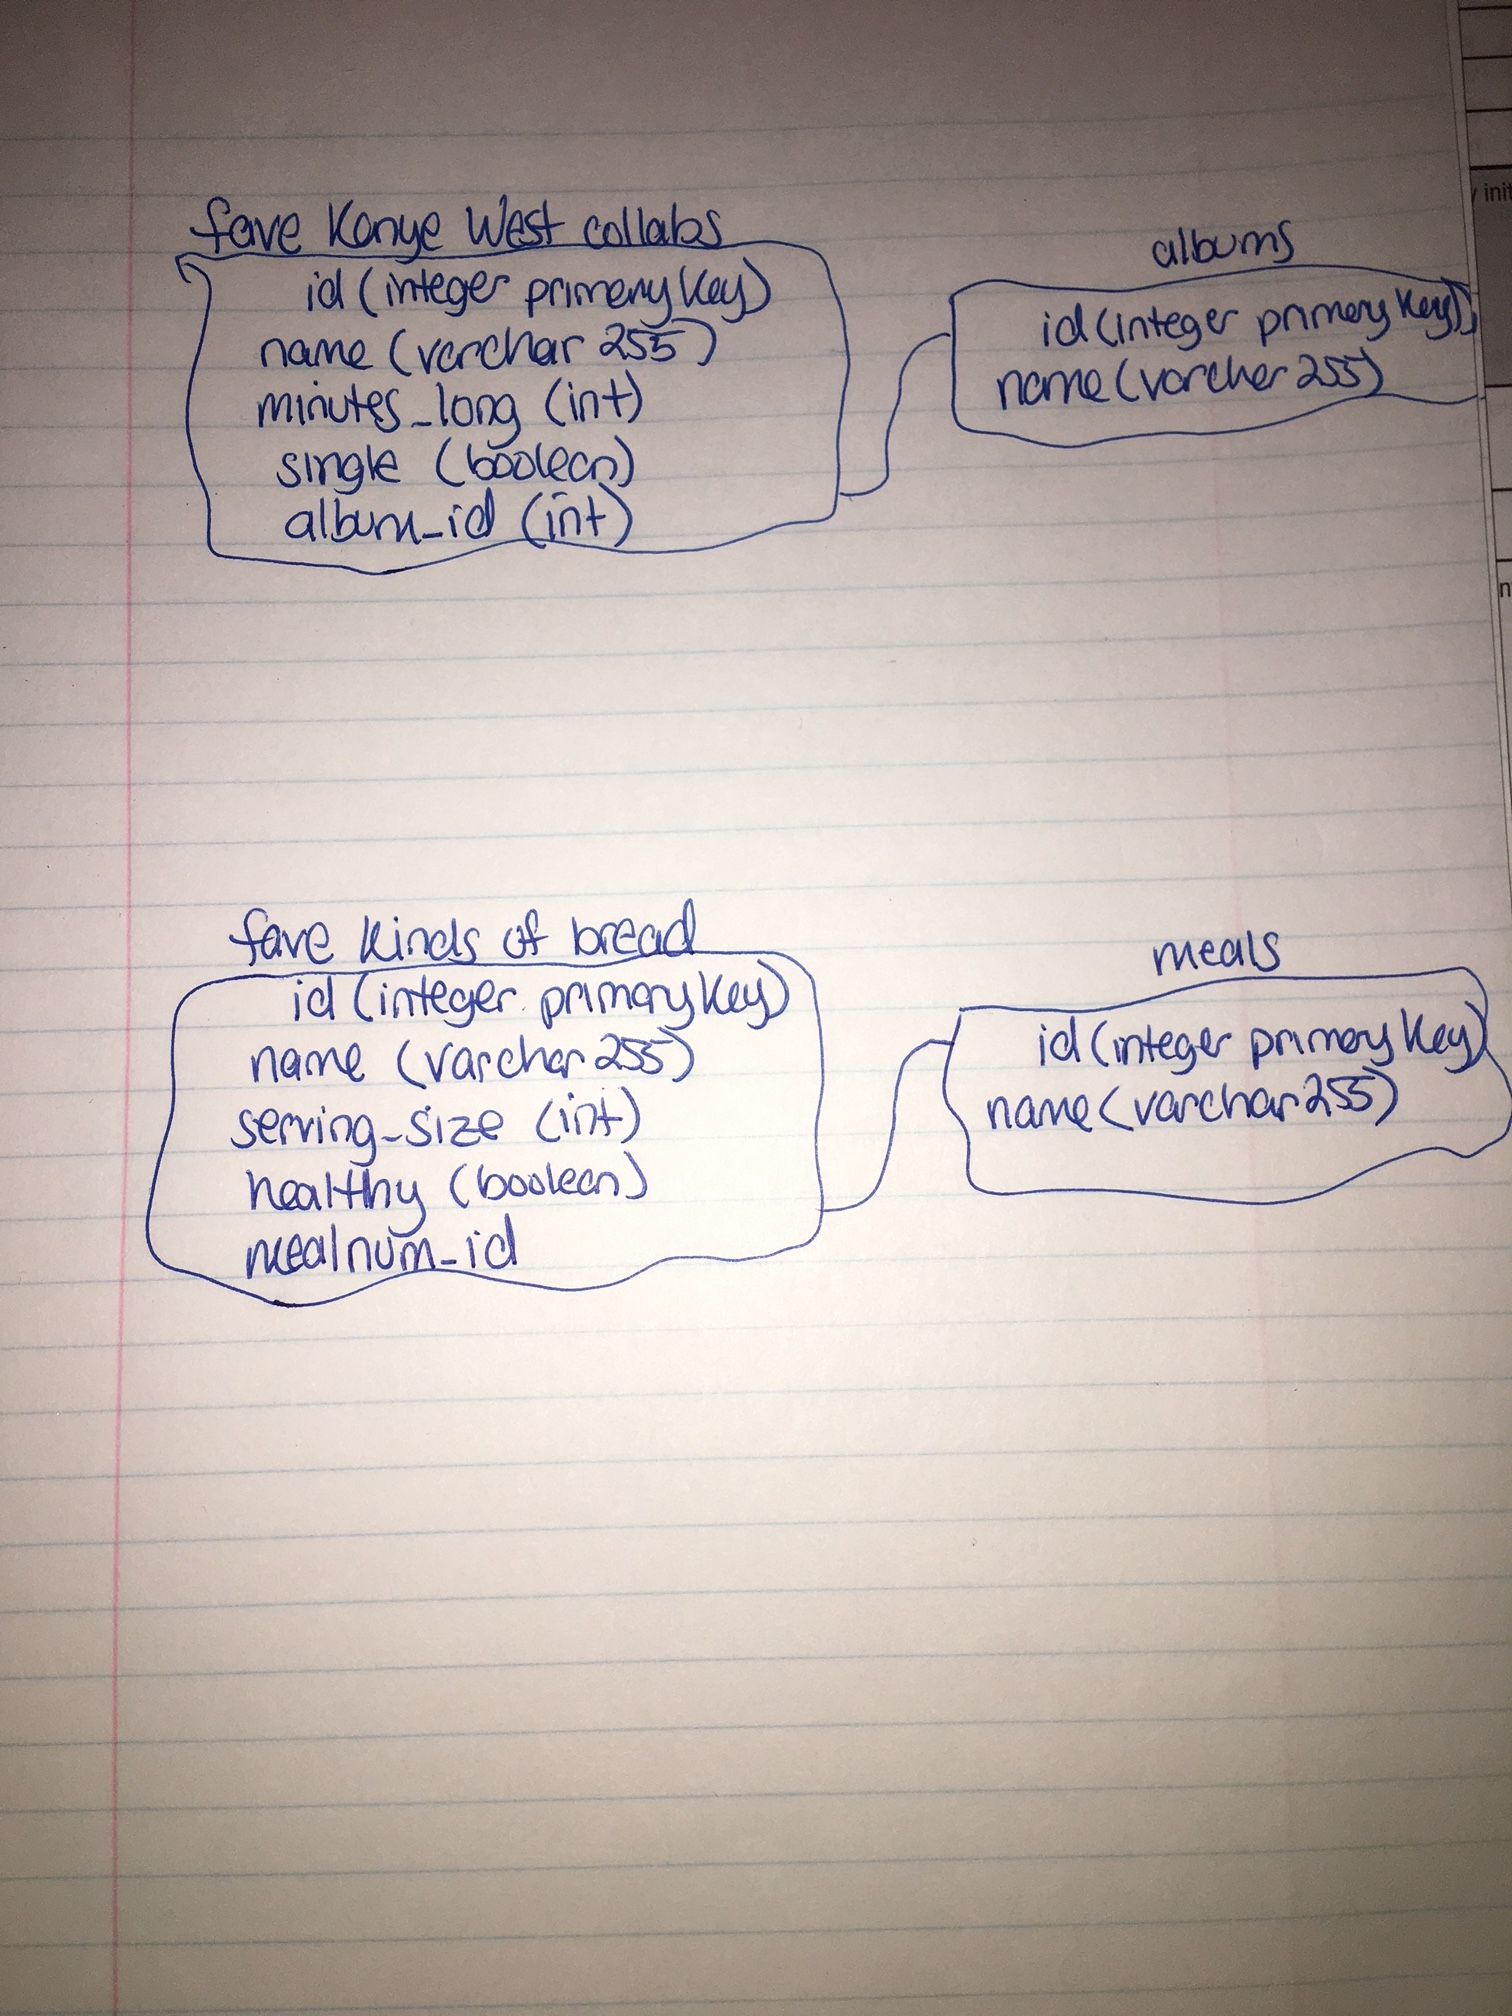 fave Kanye West collabs
id (integer primary key)
name (varchar 255)
minutes_long (int)
single (boolean)
album_id (int)
albums
id (integer primary key)
name (varchar 255)
fave kinds of bread
id (integer primary key)
name (varchar 255)
serving_size (int)
healthy (boolean)
mealnum_id
meals
id (integer primary key)
name (varchar 255)
init